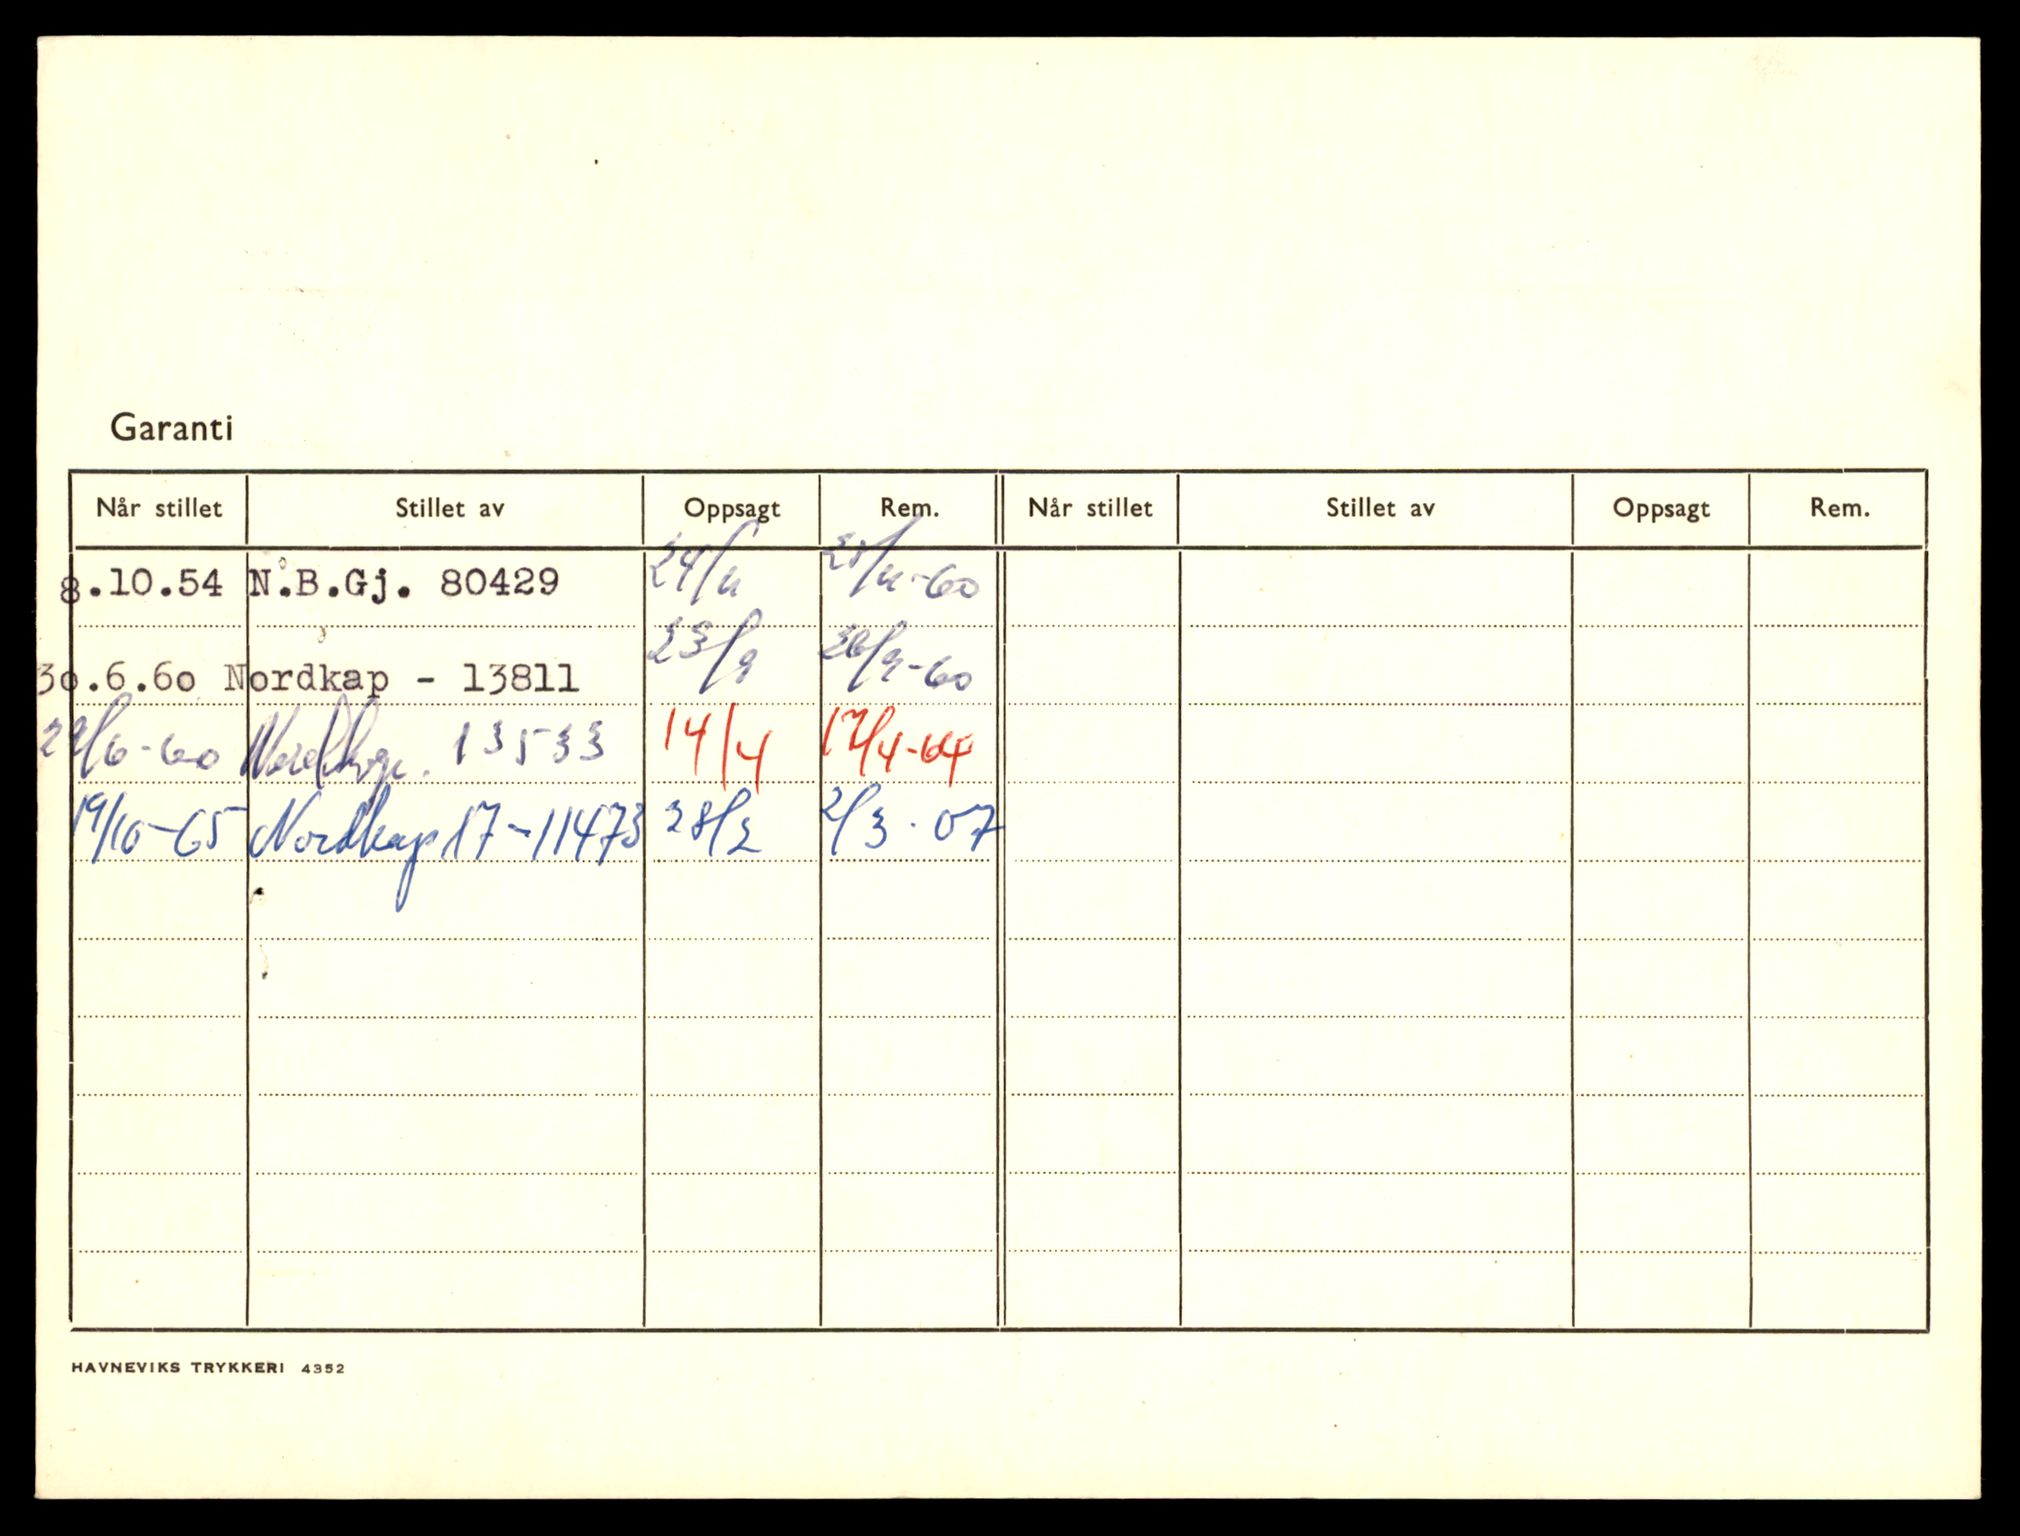 Garanti
Når stillet Stillet av Oppsagt Rem. Når stillet Stillet av Oppsagt Rem.
8.10.54 N.B.Gj. 80429 24/11 25/11-60
30.6.60 Nordkap - 13811 23/9 26/9-60
29/6-60 Nordkap. 13533 14/4 17/4-64
19/10-65 Nordkap 17-11473 28/2 2/3.07
HAVNEVIKS TRYKKERI 4352